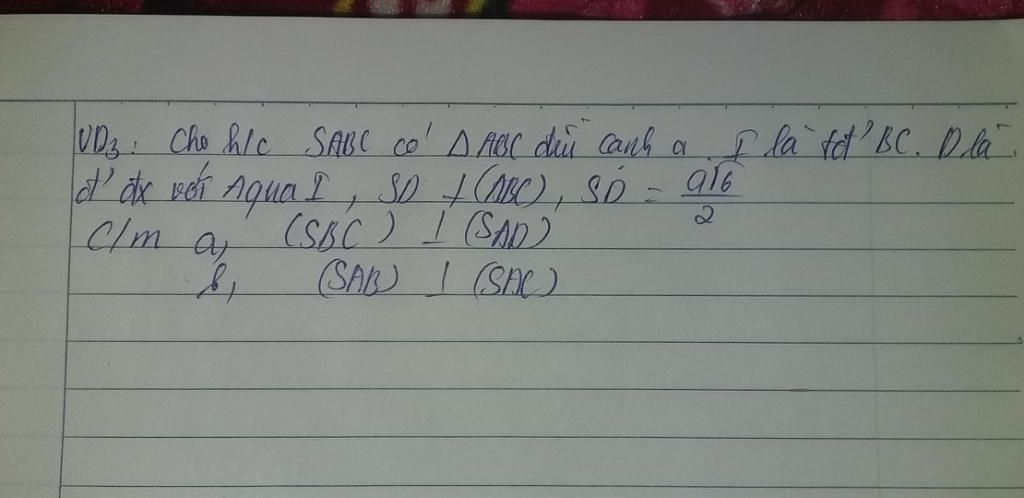 VD3: Cho h/c SABC có ΔABC đều cạnh a. I là tđ' BC. D là
đ' đx với A qua I, SD ⊥ (ABC), SD = a√6/2
C/m a, (SBC) ⊥ (SAD)
b, (SAB) ⊥ (SAC)